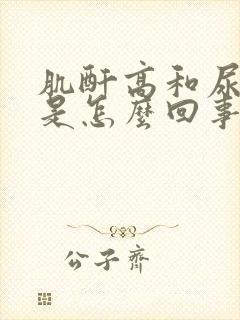 肌酐高和尿
是怎麼回事
公子齊